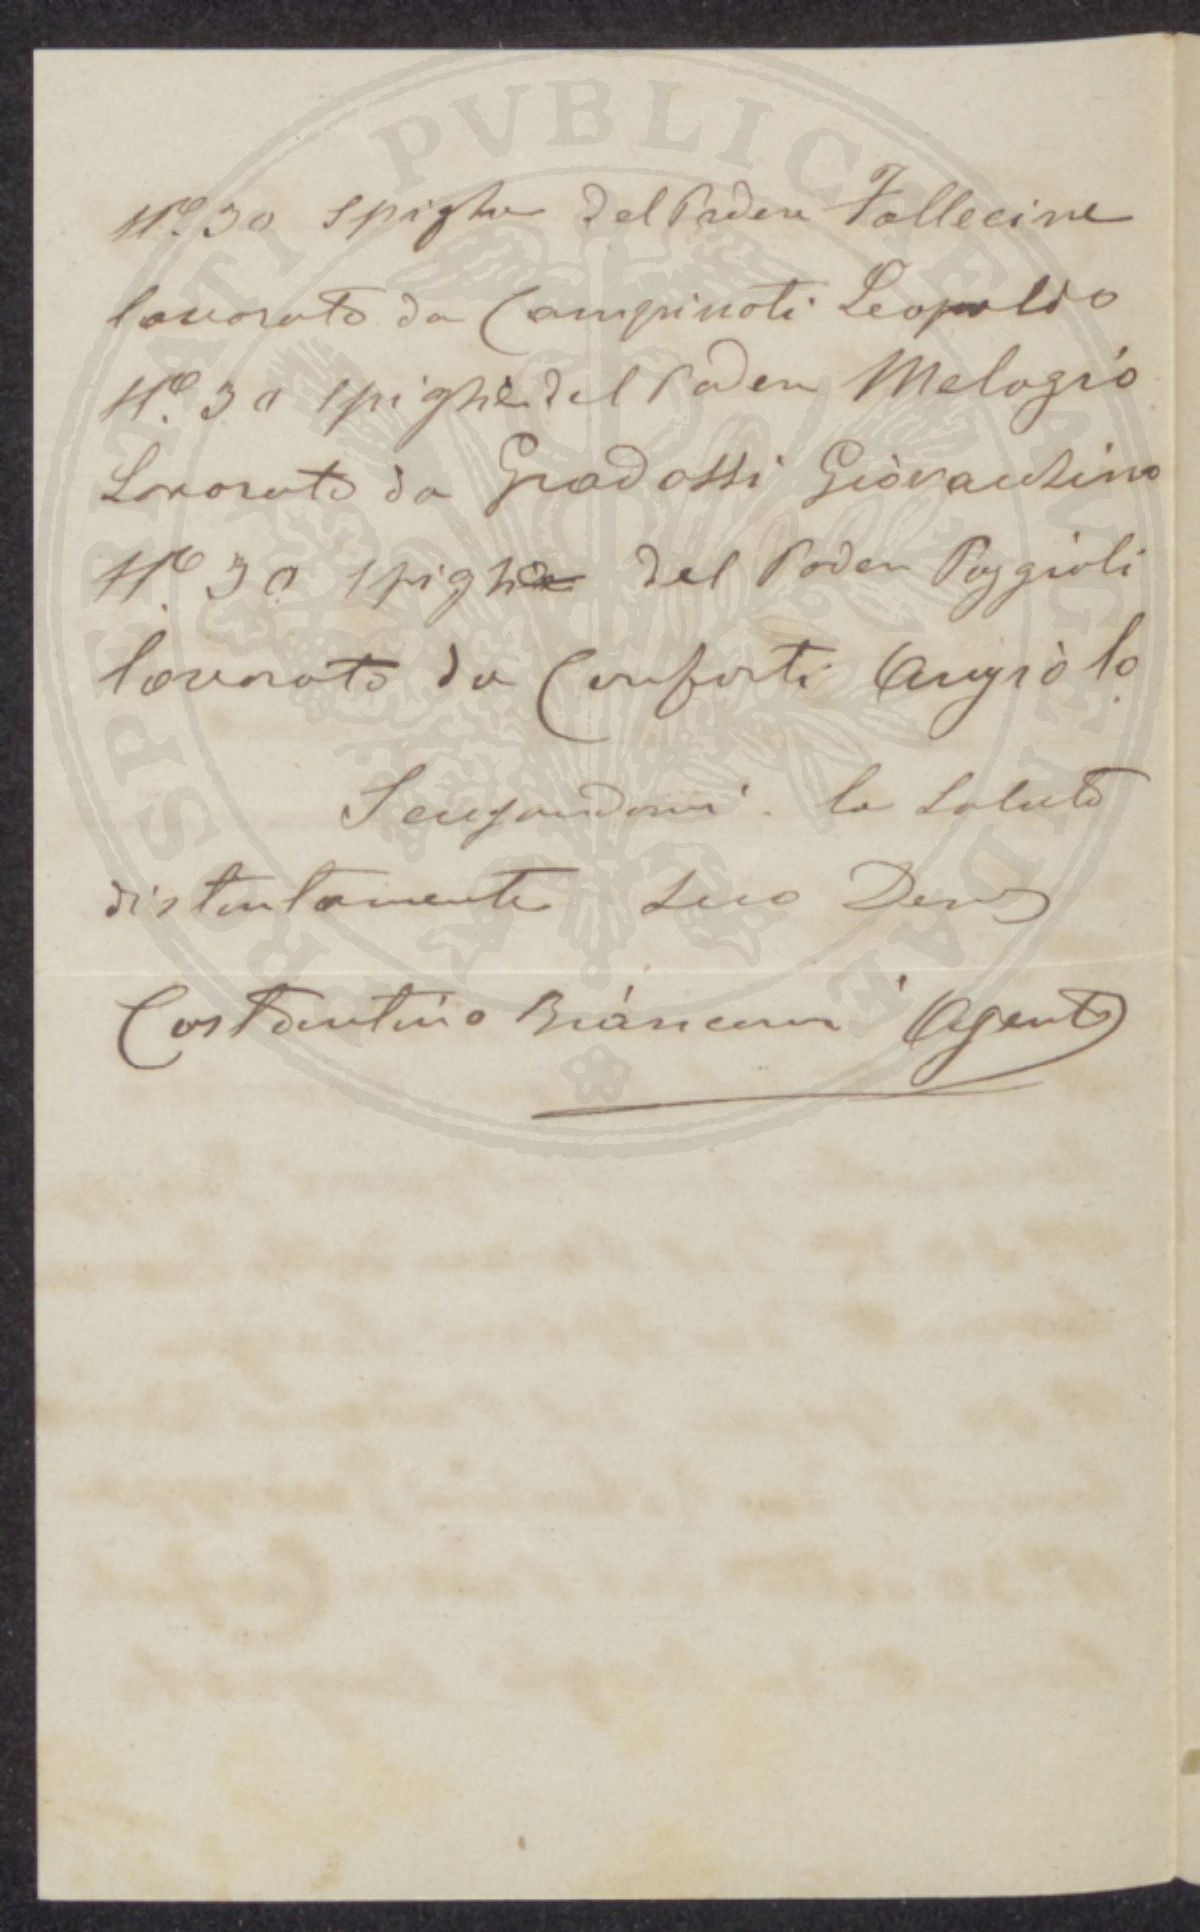 N.o 30 spighe del Podere Tallecine
lavorato da Campinoti Leopoldo
N.o 30 spighe del Podere Melogio
Lavorato da Gradossi Giovacchino
N.o 30 spighe del Podere Poggioli
lavorato da Conforti Angiolo
la saluto
distintamente suo Dev
Costantino Biancani Agente
PVBLICAE